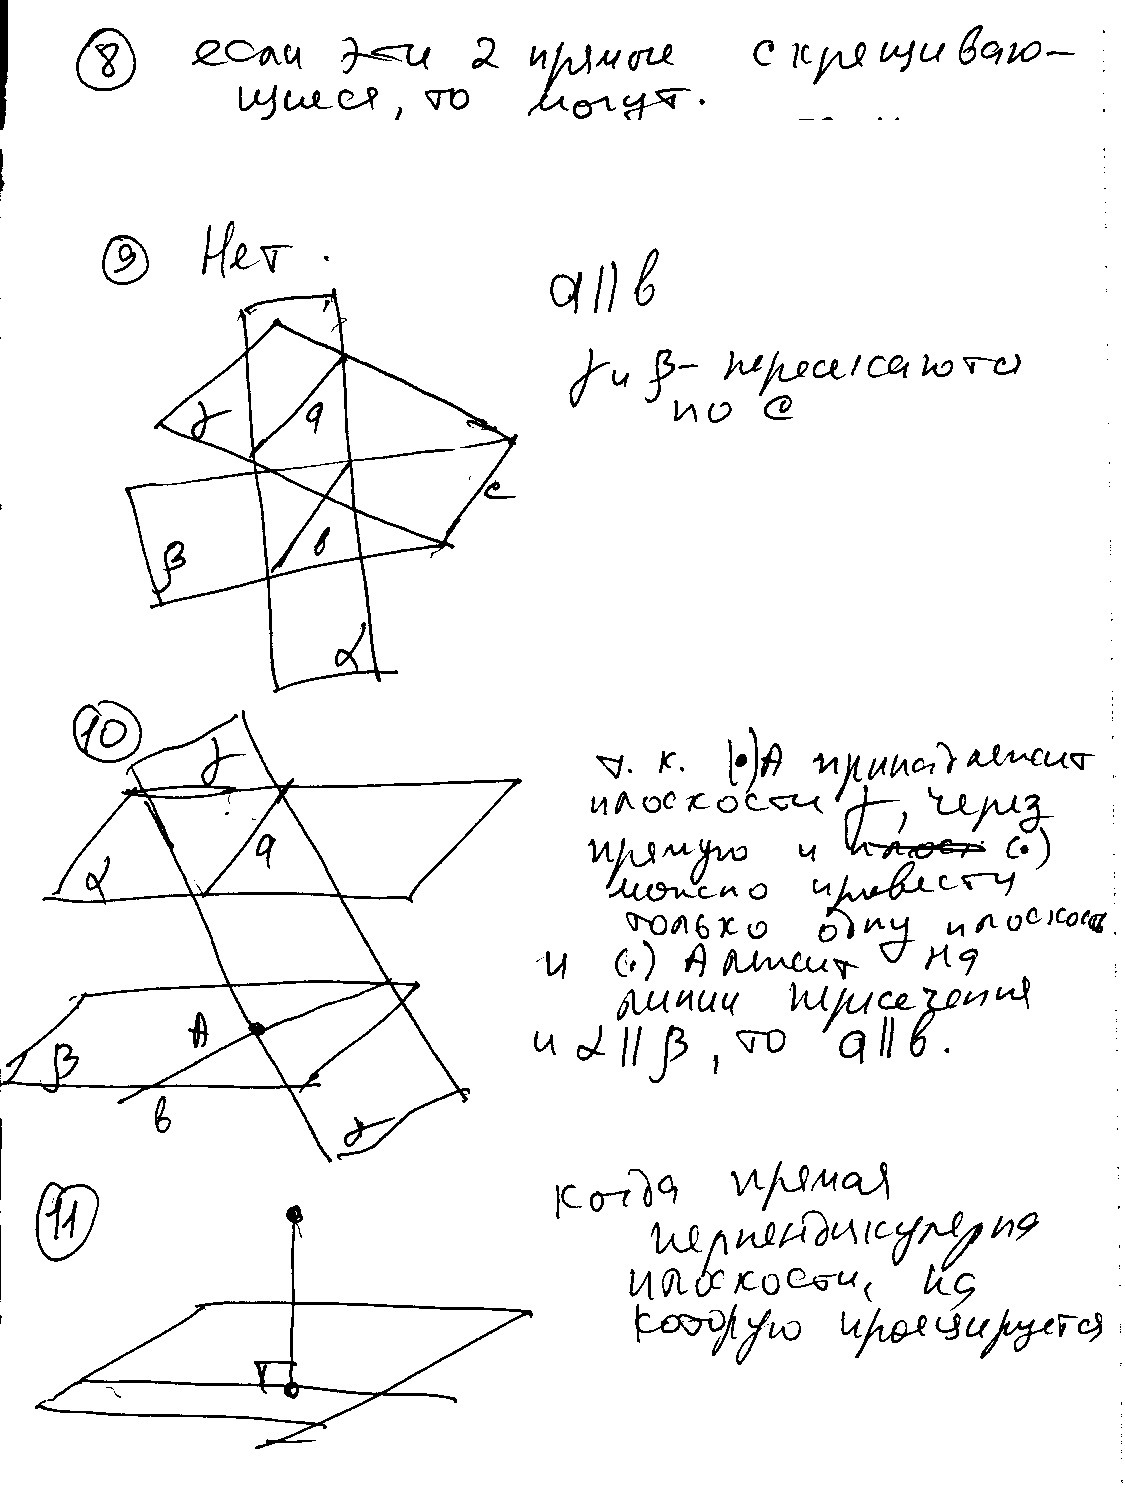 8 если эти 2 прямые скрещиваю-
щиеся, то могут.
9 Нет.
a || b
γ и β - пересекаются
по c
γ
a
c
b
β
α
10
γ
т. к. (•)A принадлежит
плоскости γ, через
прямую и (•)
α
a
можно провести
только одну плоскость
и (•) A лежит на
линии пересечения
A
и α || β, то a || b.
β
b
γ
11
когда прямая
перпендикулярна
плоскости, на
которую проецируется